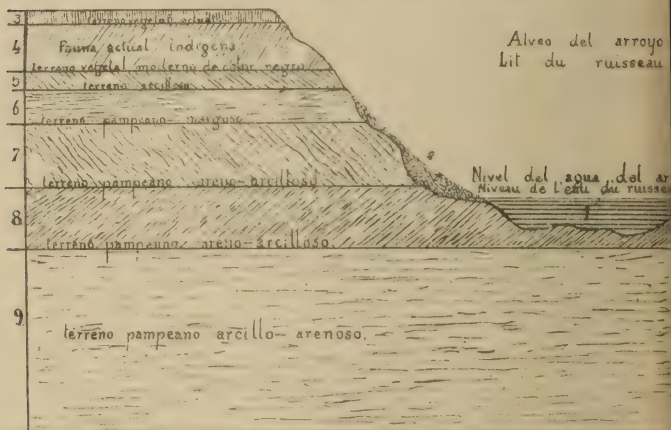 3 terreno vegetal actual
4 Fauna actual indígena
terreno vegetal moderno de color negro
5 terreno arcilloso
6
terreno pampeano margoso
7
terreno pampeano areno-arcilloso
8
terreno pampeano areno-arcilloso.
9
terreno pampeano arcillo-arenoso.
Alveo del arroyo
Lit du ruisseau
Nivel del agua del ar
Niveau de l'eau du ruisse
1